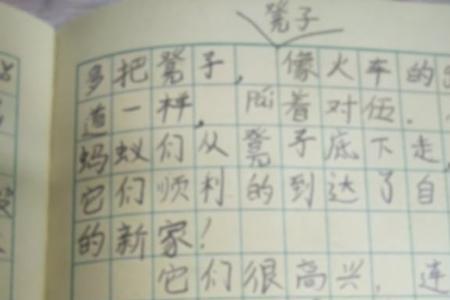 凳子
多把凳子，像火车的
道一样，pái着对伍．
蚂蚁们从凳子底下走，
它们顺利的到达了自
的新家！
它们很高兴，连